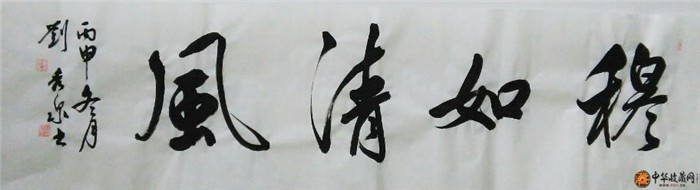 穆如清風
丙申冬月
劉秀泉書
中华收藏网